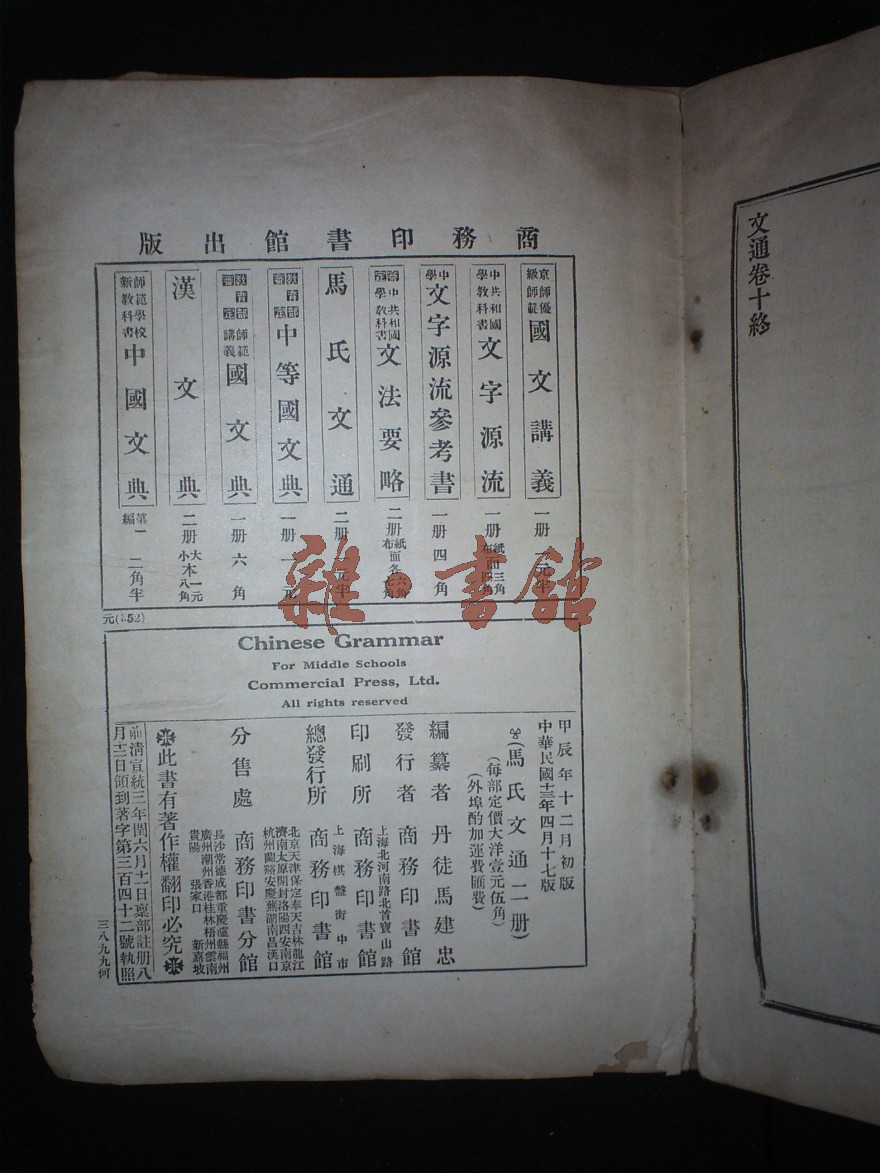 文通卷十終
商務印書館出版
京師優級師範 國文講義 一册 一元半
中學共和國教科書 文字源流 一册 紙面三角 布面四角
中學 文字源流參考書 一册 四角
審定 中學共和國教科書 文法要略 二册 紙面各六角 布面各七角
馬氏文通 二册 一元半
教育部審定 中等國文典 一册 一元
教育部審定 師範講義 國文典 一册 六角
漢文典 二册 大本一元 小本八角
師範學校新教科書 中國文典 第一編 二角半
Chinese Grammar
For Middle Schools
Commercial Press, Ltd.
All rights reserved
甲辰年十二月初版
中華民國十三年四月十七版
(馬氏文通二册)
(每部定價大洋壹元伍角)
(外埠酌加運費匯費)
編纂者 丹徒馬建忠
發行者 商務印書館
上海北河南路北首寶山路
印刷所 商務印書館
上海棋盤街中市
總發行所 商務印書館
北京天津保定奉天吉林龍江
濟南太原開封洛陽西安南京
杭州蘭谿安慶蕪湖南昌漢口
分售處 商務印書分館
長沙常德成都重慶瀘縣福州
廣州潮州香港桂林梧州雲南
貴陽 張家口 新嘉坡
此書有著作權翻印必究
前清宣統三年閏六月十二日稟部註册八
月十二日領到著字第三百四十二號執照
三八九九何
雜·書館